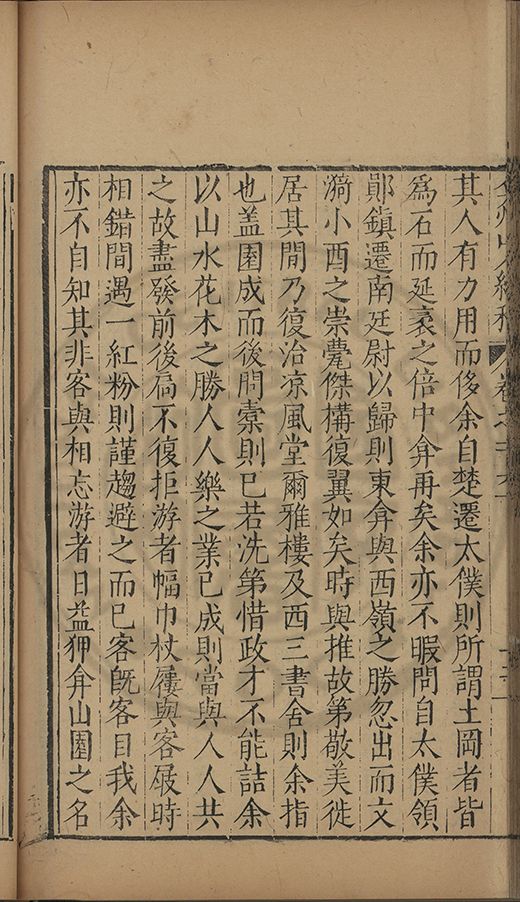 其人有力用而侈余自楚遷太僕則所謂土岡者皆
爲石而延袤之倍中弇再矣余亦不暇問自太僕領
鄖鎮遷南廷尉以歸則東弇與西嶺之勝忽出而文
漪小酉之崇甍傑構復翼如矣時與推故第敬美徙
居其間乃復治涼風堂爾雅樓及西三書舍則余指
也盖園成而後問橐則已若洗第惜政才不能詰余
以山水花木之勝人人樂之業已成則當與人人共
之故盡發前後扃不復拒游者幅巾杖屨與客屐時
相錯間遇一紅粉則謹趨避之而已客旣客目我余
亦不自知其非客與相忘游者日益狎弇山園之名